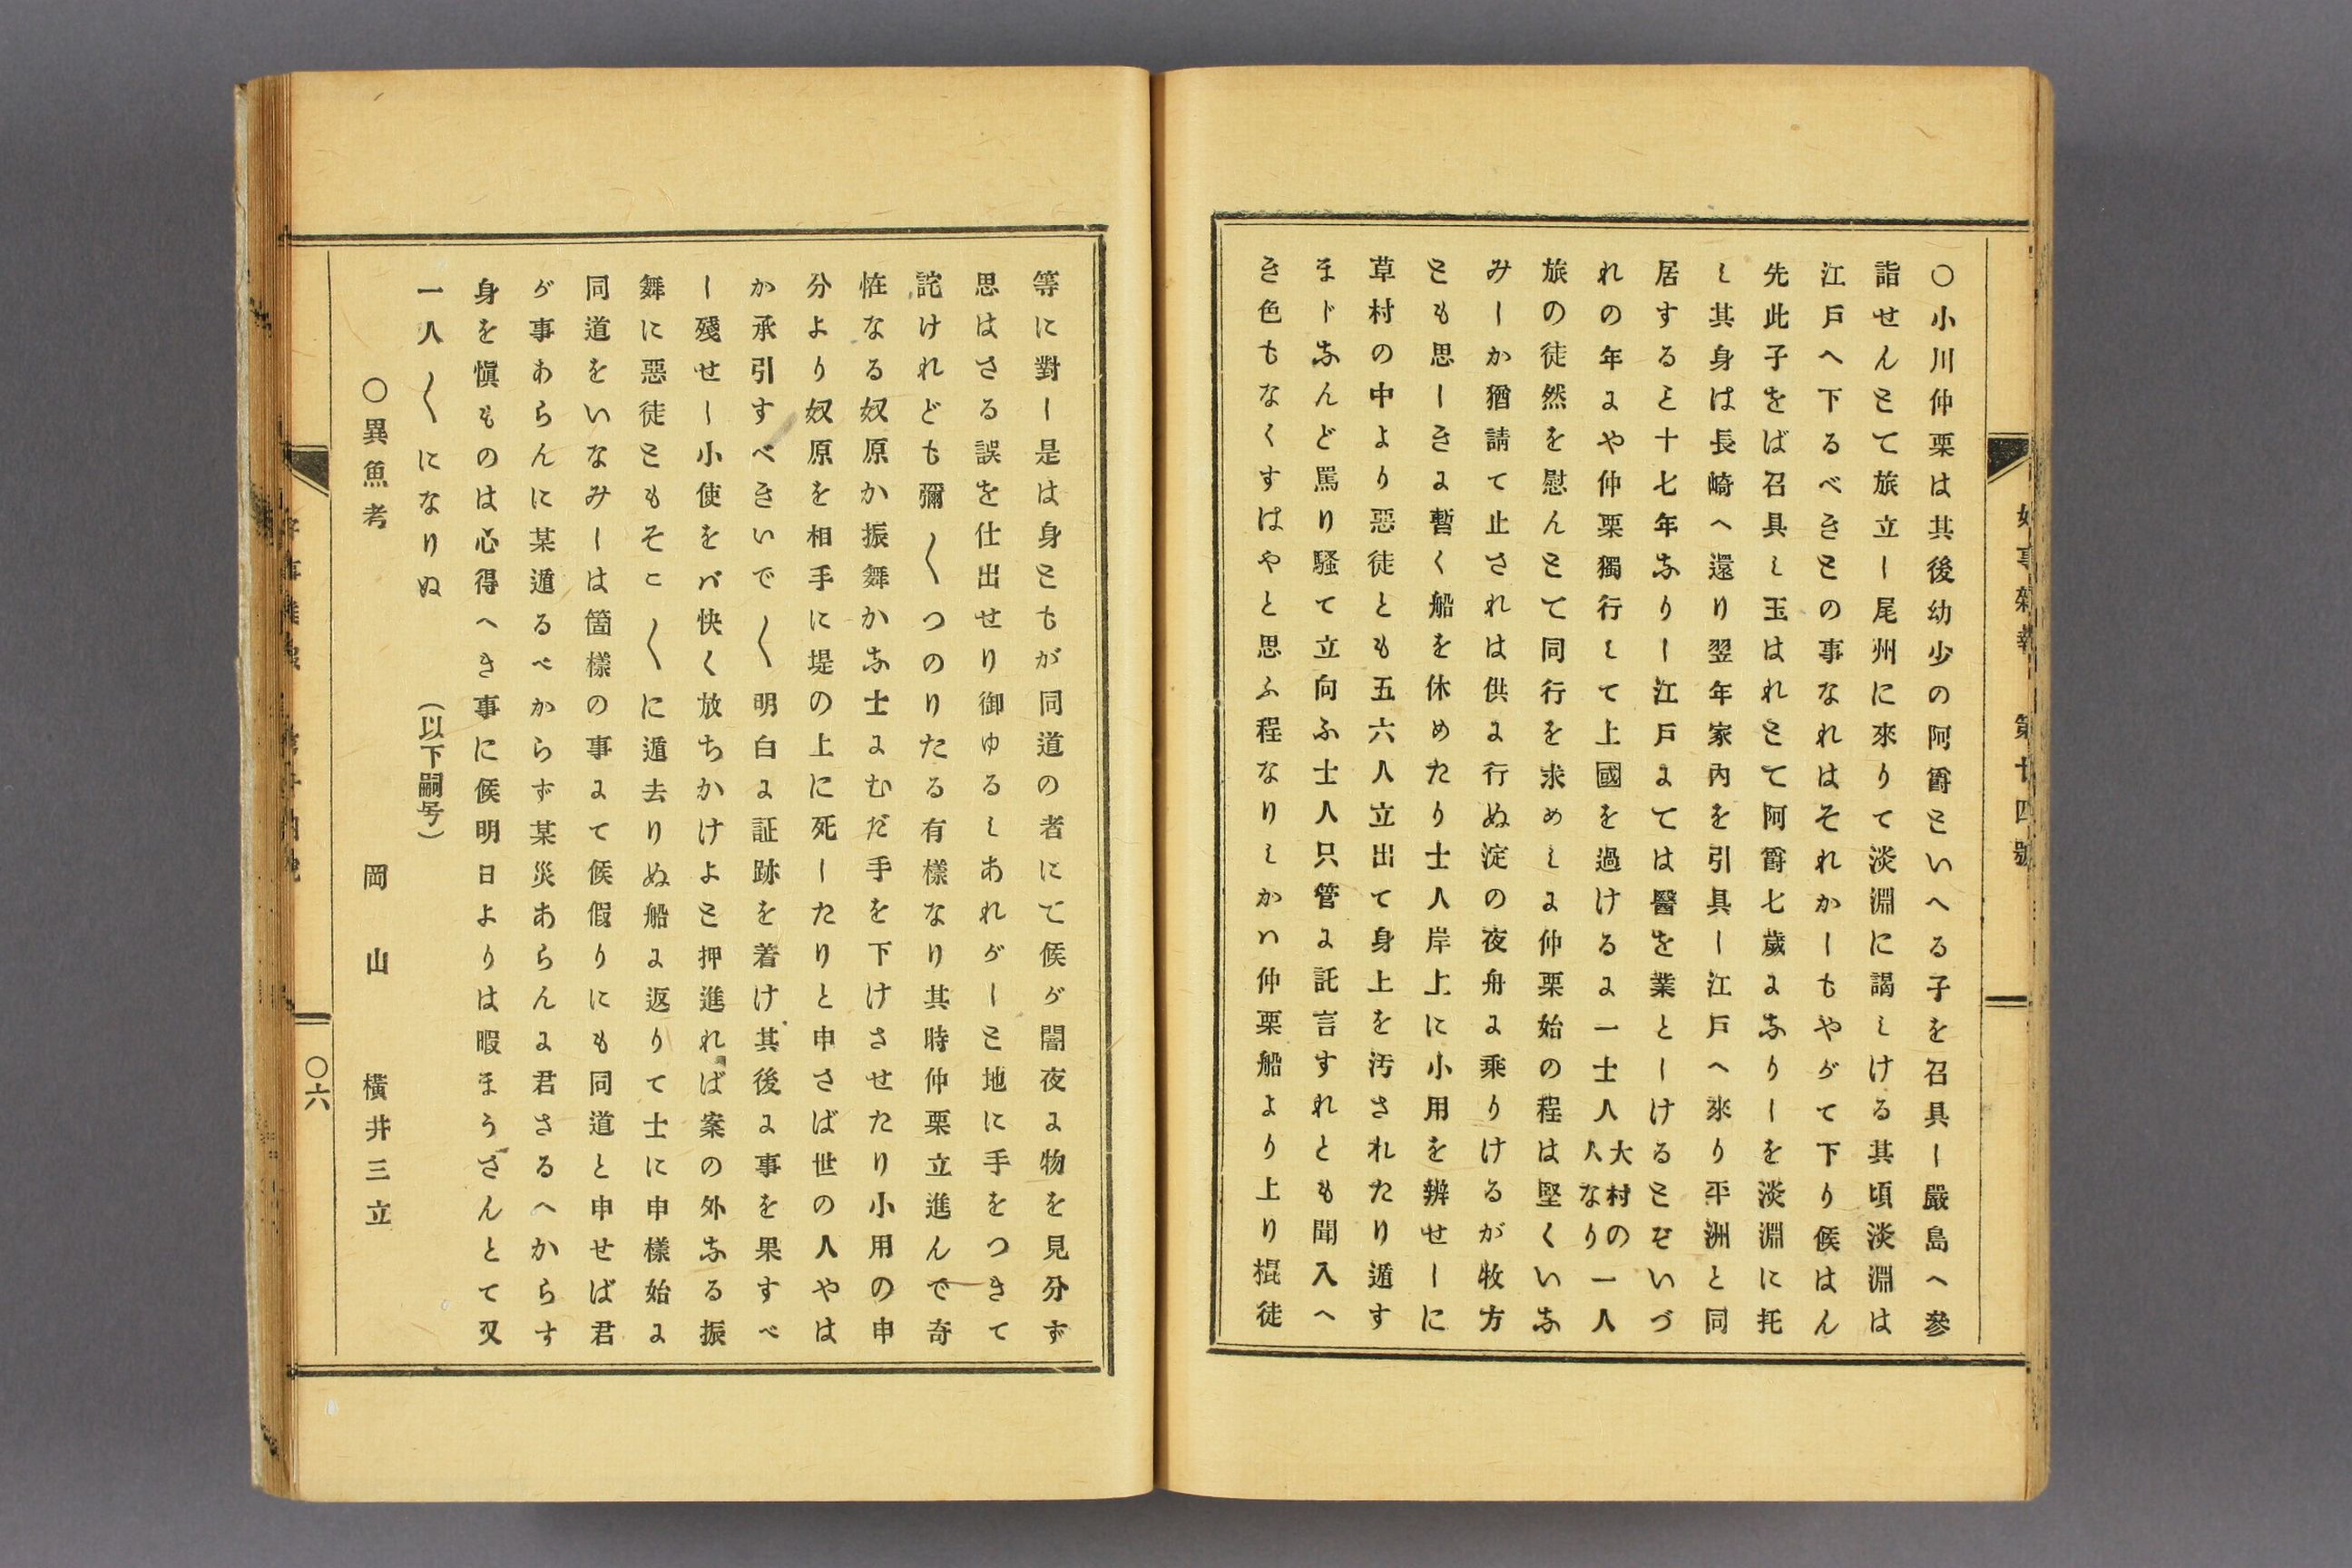 好事雜報 第十四號
〇小川仲栗は其後幼少の阿爵といへる子を召具し嚴島へ參
詣せんとて旅立し尾州に來りて淡淵に謁しける其頃淡淵は
江戸へ下るべきとの事なれはそれかしもやがて下り候はん
先此子をば召具し玉はれとて阿爵七歲になりしを淡淵に托
し其身は長崎へ還り翌年家內を引具し江戸へ來り平洲と同
居すると十七年なりし江戸にては醫を業としけるとぞいづ
れの年にや仲栗獨行して上國を過けるに一士人大村の一人人なり
旅の徒然を慰んとて同行を求めしに仲栗始の程は堅くいな
みしか猶請て止されは供に行ぬ淀の夜舟に乘りけるが牧方
とも思しきに暫く船を休めたり士人岸上に小用を辨せしに
草村の中より惡徒とも五六人立出て身上を汚されたり遁す
まじなんど罵り騷て立向ふ士人只管に託言すれとも聞入へ
き色もなくすはやと思ふ程なりしかハ仲栗船より上り棍徒
等に對し是は身ともが同道の者にて候が闇夜に物を見分ず
思はさる誤を仕出せり御ゆるしあれがしと地に手をつきて
詫けれども彌〱つのりたる有樣なり其時仲栗立進んで奇
恠なる奴原か振舞かな士にむだ手を下けさせたり小用の申
分より奴原を相手に堤の上に死したりと申さば世の人やは
か承引すべきいで〱明白に証跡を着け其後に事を果すべ
し殘せし小使をバ快く放ちかけよと押進れば案の外なる振
舞に惡徒ともそこ〱に遁去りぬ船に返りて士に申樣始に
同道をいなみしは箇樣の事にて候假りにも同道と申せば君
が事あらんに某遁るべからず某災あらんに君さるへからす
身を愼ものは心得へき事に候明日よりは暇まうさんとて又
一人〱になりぬ　（以下嗣号）
〇異魚考　岡山　橫井三立
〇六